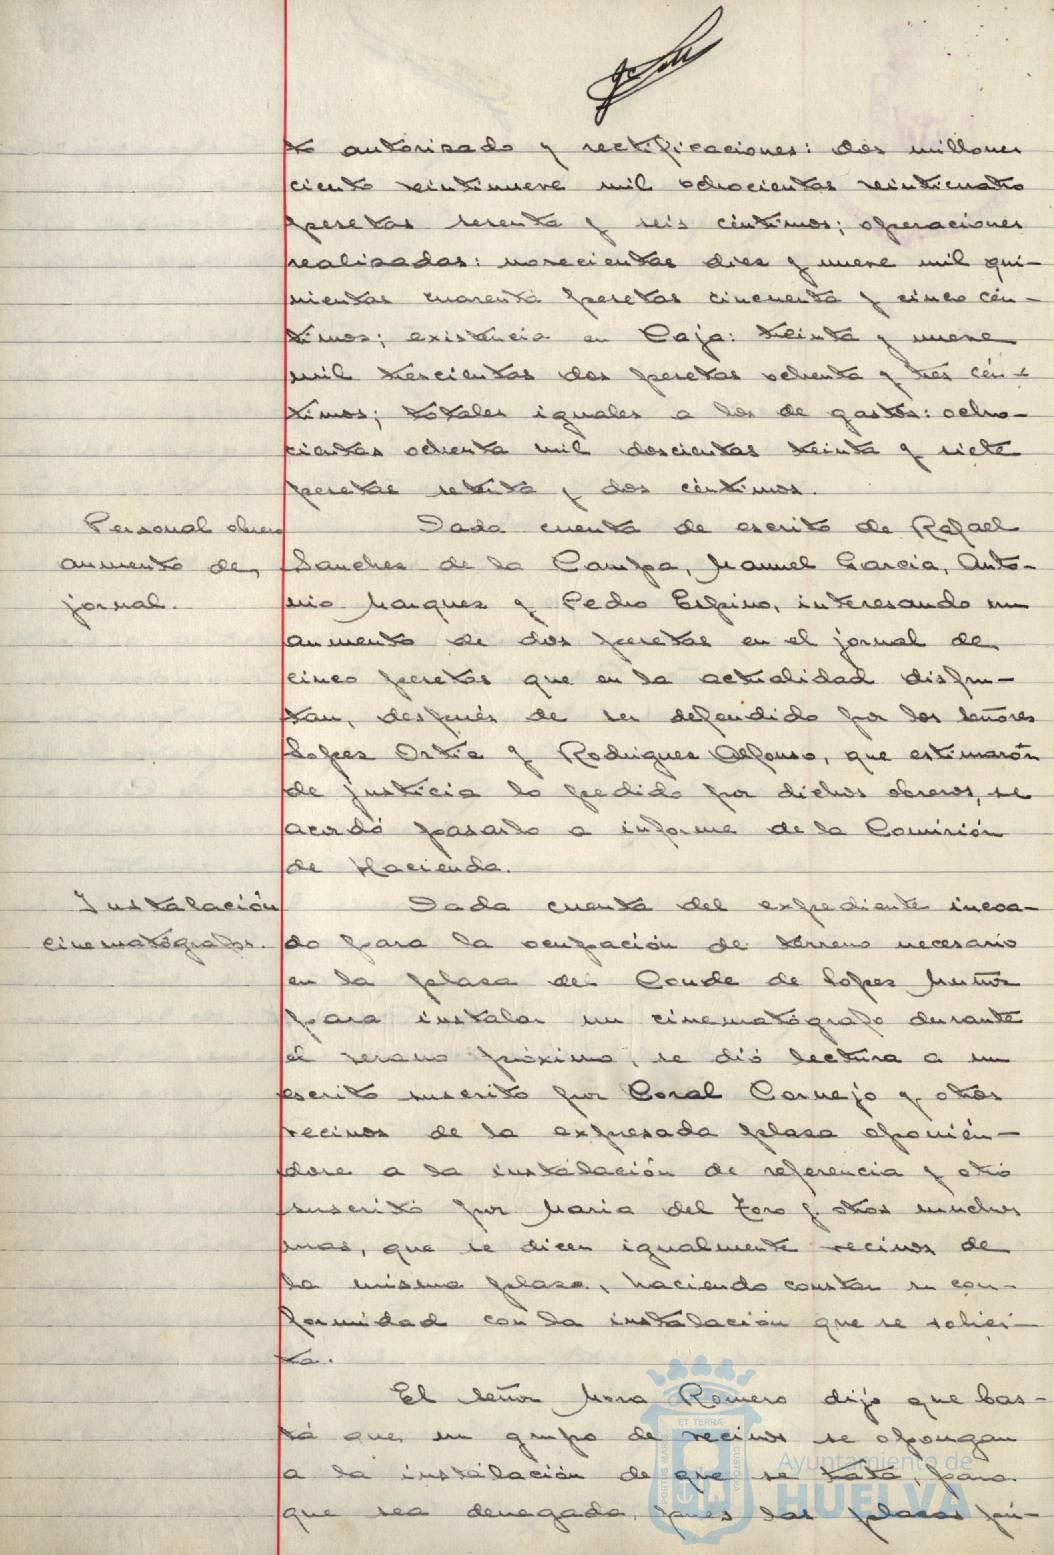 to autorisado y rectificaciones: dos millones
ciento veintinueve mil ochocientas veinticuatro
pesetas sesenta y seis céntimos; operaciones
realisadas: novecientas dies y nueve mil qui-
nientas cuarenta pesetas cincuenta y cinco cén-
timos; existencia en Caja: treinta y nueve
mil trescientas dos pesetas ochenta y tres cén-
timos; totales iguales a los de gastos: ocho-
cientas ochenta mil doscientas treinta y siete
pesetas setenta y dos céntimos.
Personal obrero
aumento de
jornal.
Dada cuenta de escrito de Rafael
Sanches de la Campa, Manuel Garcia, Anto-
nio Marques y Pedro Espino, interesando un
aumento de dos pesetas en el jornal de
cinco pesetas que en la actualidad disfru-
tan, después de ser defendido por los señores
Lopes Ortis y Rodrigues Alfonso, que estimarón
de justicia lo pedido por dichos obreros, se
acordó pasarlo a informe de la Comisión
de Hacienda.
Instalación
cinematógrafos.
Dada cuenta del expediente incoa-
do para la ocupación de terreno necesario
en la plasa del Conde de Lopes Muños
para instalar un cinematógrafo durante
el verano próximo, se dió lectura a un
escrito suscrito por Coral Cornejo y otros
vecinos de la expresada plasa oponién-
dose a la instalación de referencia y otro
suscrito por Maria del Toro y otros muchos
mas, que se dicen igualmente vecinos de
la misma plasa, haciendo constar su con-
formidad con la instalación que se solici-
ta.
El señor Mora Romero dijo que bas-
ta que un grupo de vecinos se opongan
a la instalación de que se trata, para
que sea denegada, pues las plasas pú-
ET TERRÆ
PORTUS MARIS
CUSTODIA
Ayuntamiento de
HUELVA